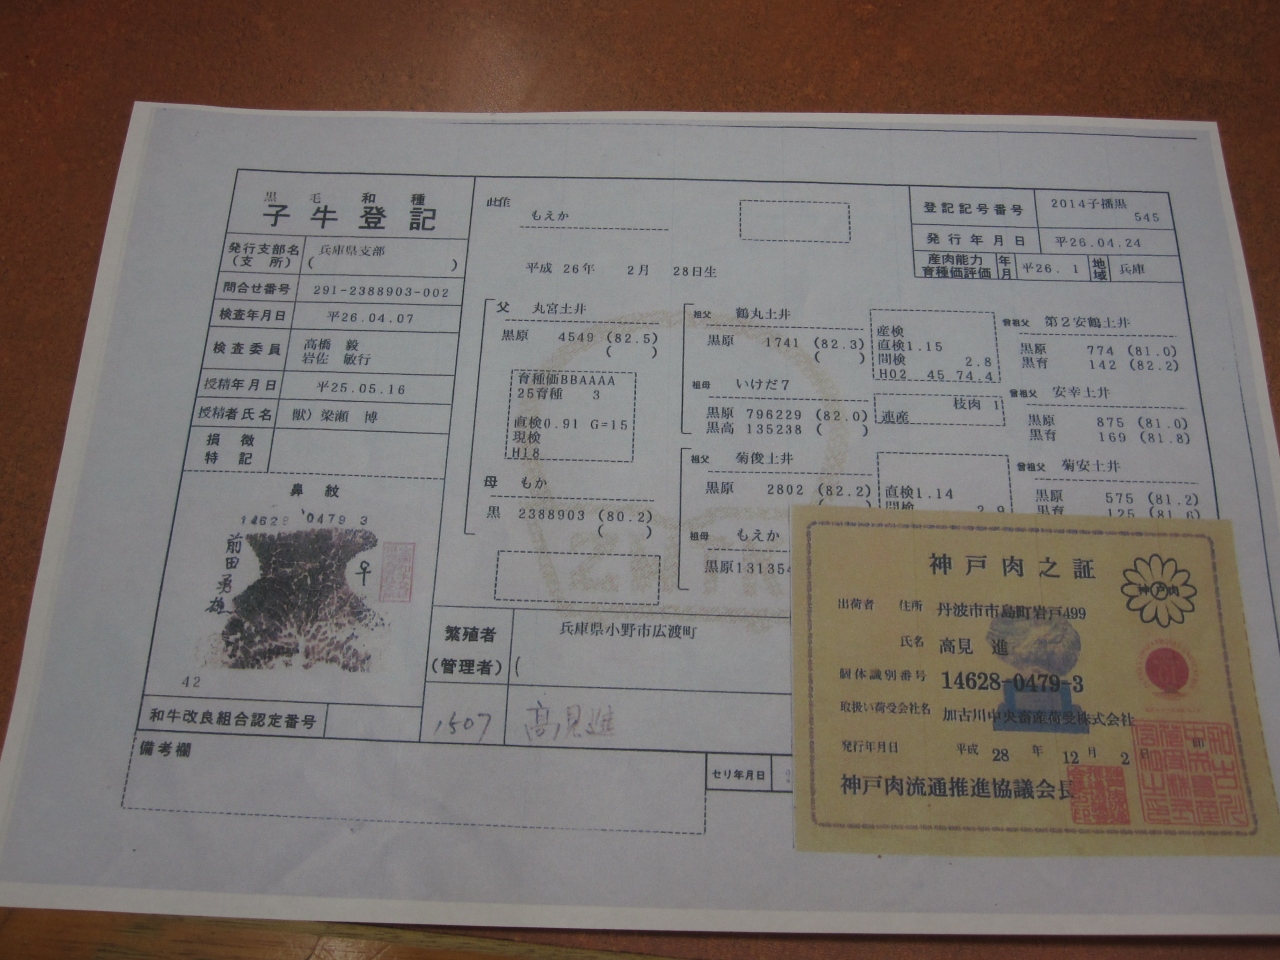 黒毛和種
子牛登記
発行支部名
(支所)
兵庫県支部
( )
問合せ番号 291-2388903-002
検査年月日 平26.04.07
検査委員 高橋 毅
岩佐 敏行
授精年月日 平25.05.16
授精者氏名 獣)梁瀬 博
損徴
特記
鼻紋
14628 0479 3
前田勇雄
42
和牛改良組合認定番号
備考欄
もえか
平成 26年 2月 28日生
登記記号番号 2014子播黒
545
発行年月日 平26.04.24
産肉能力
育種価評価
年月 平26.1 地域 兵庫
父 丸宮土井
黒原 4549 (82.5)
( )
育種価BBAAAA
25育種 3
直検0.91 G=15
現検
H18
母 もか
黒 2388903 (80.2)
( )
祖父 鶴丸土井
黒原 1741 (82.3)
( )
産検
直検1.15
間検 2.8
H02 45 74.4
祖母 いけだ7
黒原 796229 (82.0)
黒高 135238 ( )
枝肉 1
連産
祖父 菊俊土井
黒原 2802 (82.2)
直検1.14
間検 2.9
祖母 もえか
黒原131354
曾祖父 第2安鶴土井
黒原 774 (81.0)
黒育 142 (82.2)
曾祖父 安幸土井
黒原 875 (81.0)
黒育 169 (81.8)
曾祖父 菊安土井
黒原 575 (81.2)
黒育 125 (81.6)
繁殖者
(管理者)
兵庫県小野市広渡町
(
1507 高見進
セリ年月日
神戸肉之証
神戸肉
出荷者 住所 丹波市市島町岩戸499
氏名 高見 進
個体識別番号 14628-0479-3
取扱い荷受会社名 加古川中央畜産荷受株式会社
発行年月日 平成 28 年 12 月 2
神戸肉流通推進協議会長